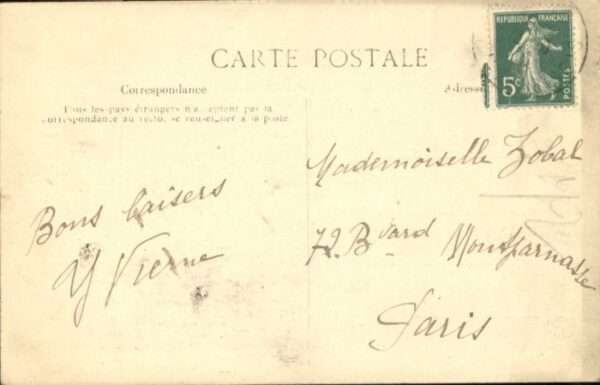 CARTE POSTALE
REPUBLIQUE FRANÇAISE
5c
POSTES
Correspondance
Tous les pays étrangers n'acceptent pas la
correspondance au recto, se renseigner à la poste
Adresse
Bons baisers
Y Vierne
Mademoiselle Zobal
72 Bvard Montparnasse
Paris